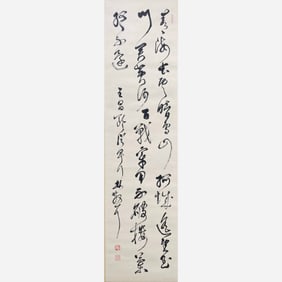 青海長雲暗雪山孤城遙望玉
門關黃沙百戰穿金甲不破樓蘭
終不還
王昌齡從軍行 林散耳